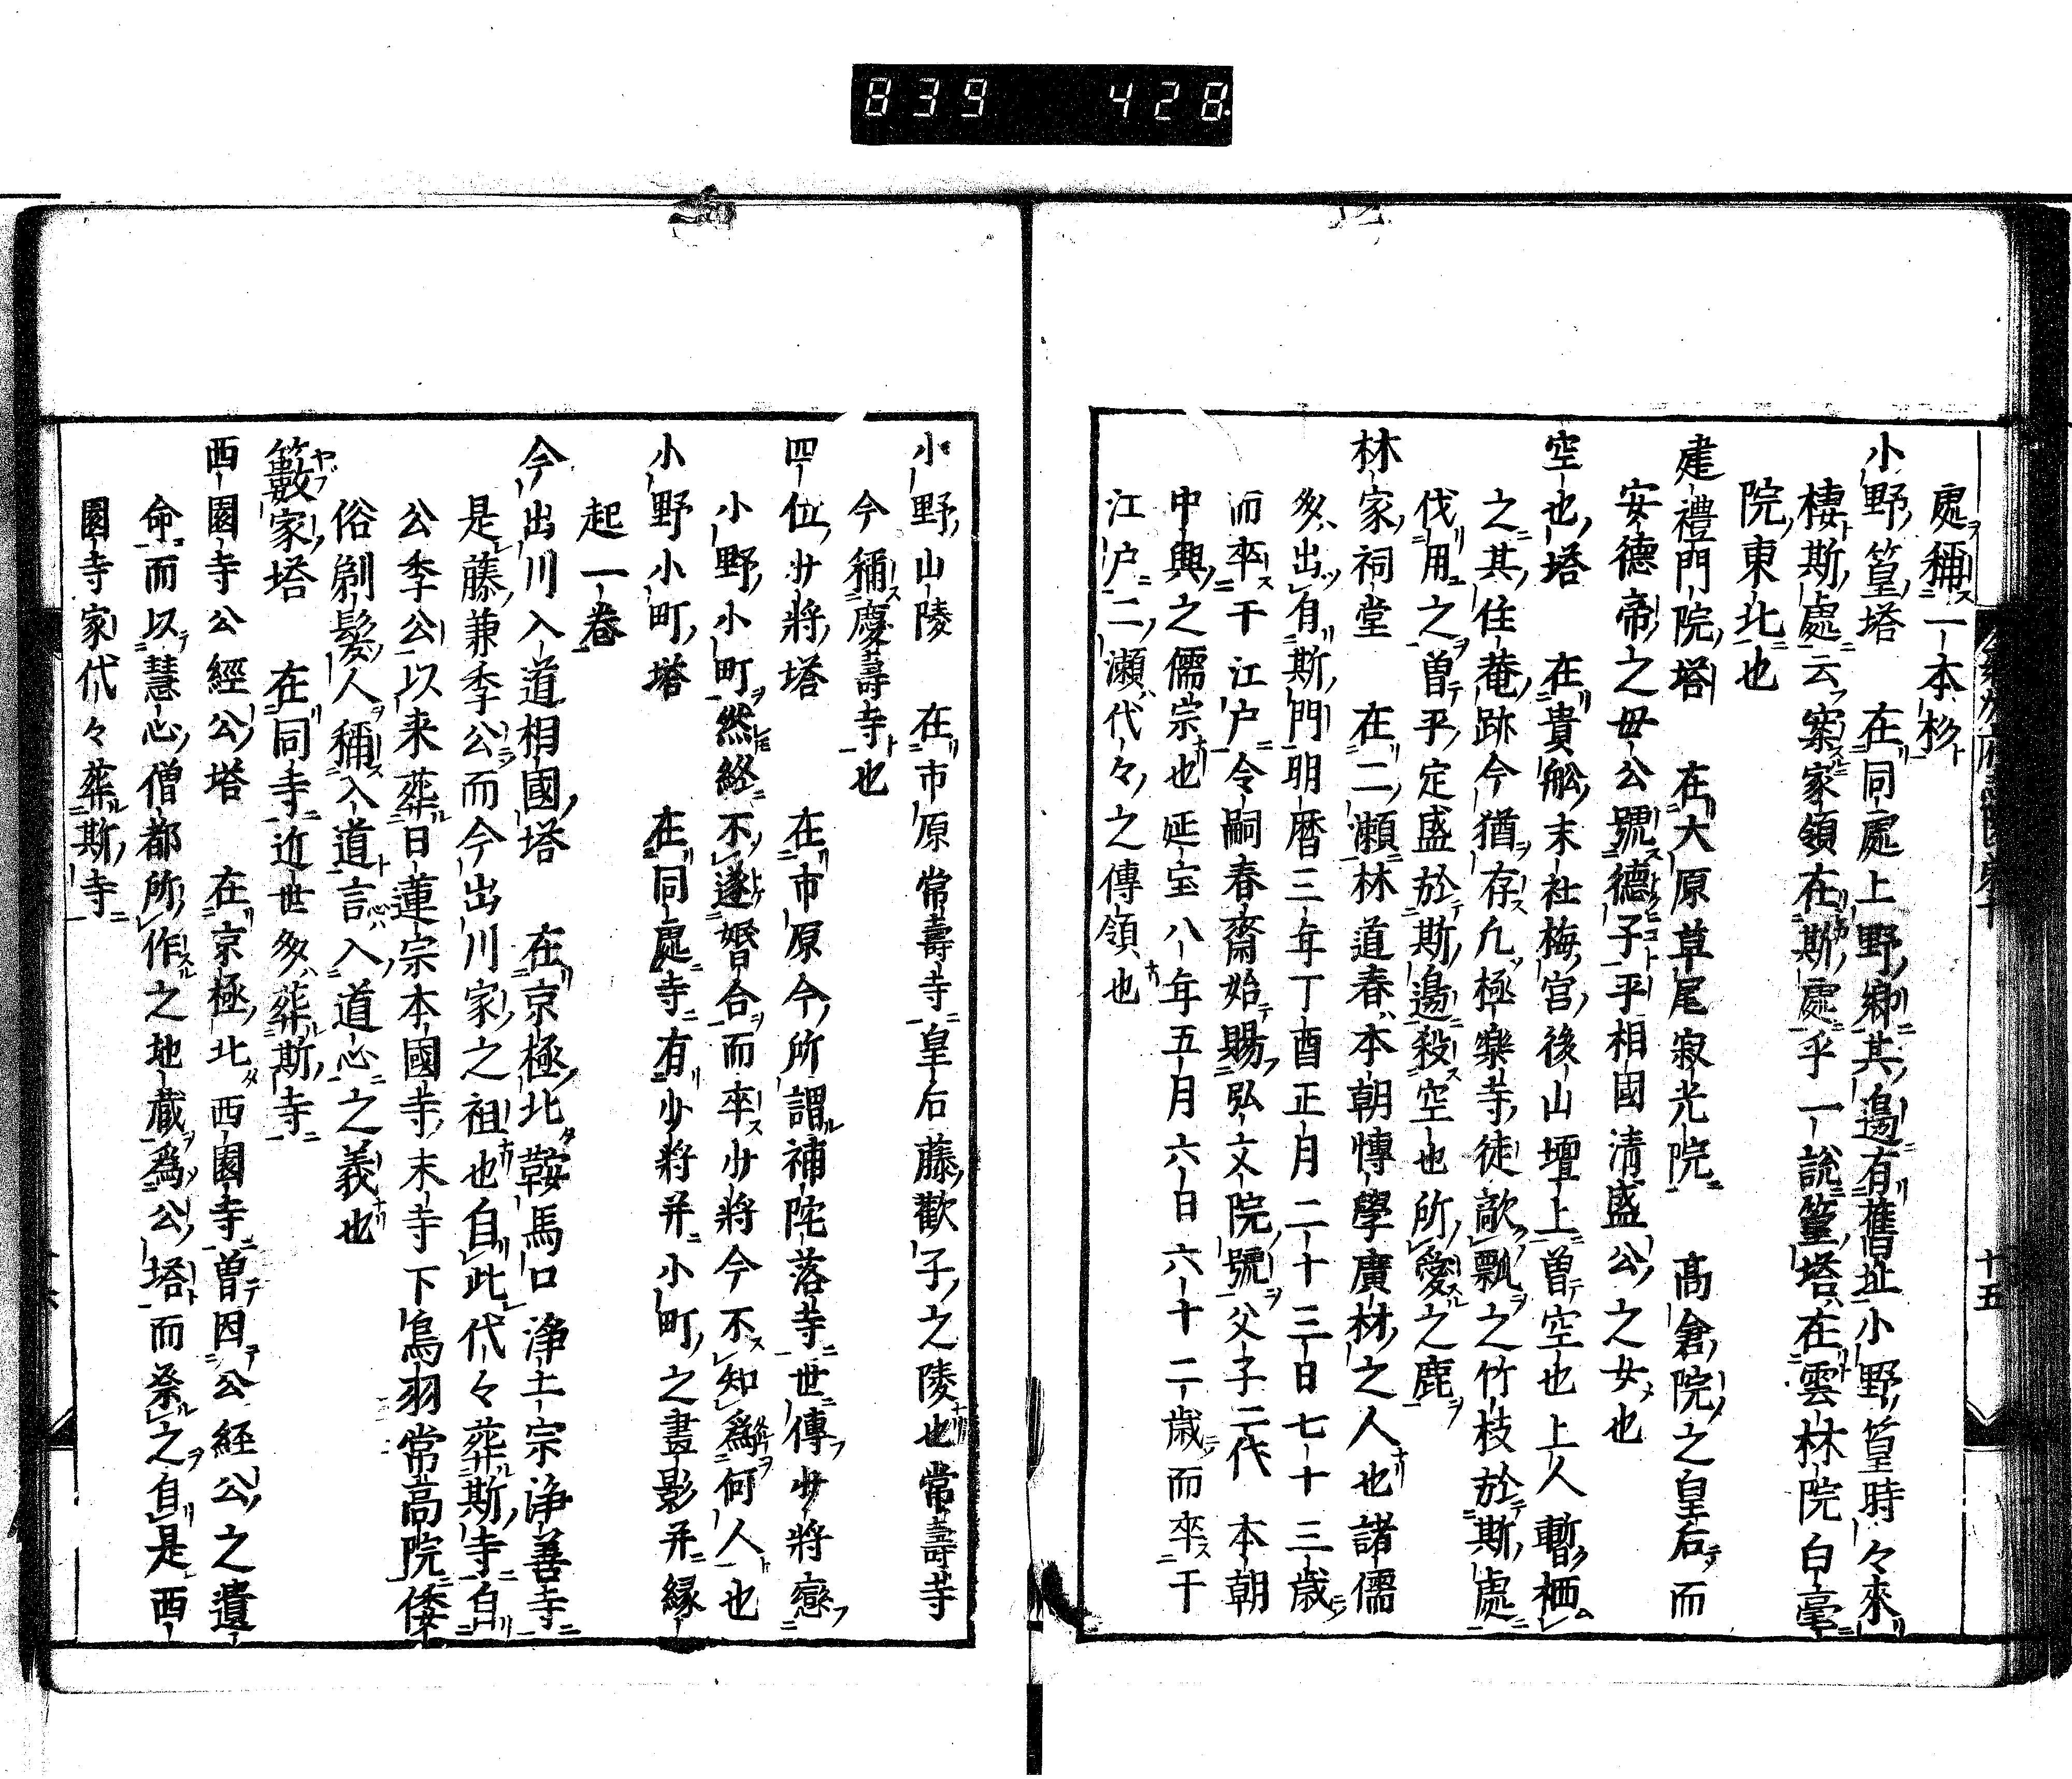 839 428
處稱一本杉
小野篁塔 在同處上野鄉其邊有舊址小野篁時々來
棲斯處云案家領在斯處乎一說篁塔在雲林院白毫
院東北也
建禮門院塔 在大原草尾寂光院 高倉院之皇后而
安德帝之母公號德子平相國清盛公之女也
空也塔 在貴舩末社梅宮後山壇上曽空也上人暫栖
之其住菴跡今猶存凢極樂寺徒敲瓢之竹枝於斯處
伐用之曽平定盛於斯邊殺空也所愛之鹿
林家祠堂 在二瀬林道春本朝博學廣材之人也諸儒
多出有斯門明暦三年丁酉正月二十三日七十三歳
而卒于江户令嗣春齋始賜弘文院號父子二代 本朝
中興之儒宗也延宝八年五月六日六十二歳而卒于
江户二瀬代々之傳領也
十五
小野山陵 在市原常壽寺皇后藤歡子之陵也常壽寺
今稱慶壽寺也
四位少將塔 在市原今所謂補陀落寺世傳少將戀
小野小町然終不遂婚合而卒少將今不知爲何人也
小野小町塔 在同處寺有少將并小町之畫影并縁
起一卷
今出川入道相國塔 在京極北鞍馬口淨土宗淨善寺
是藤兼季公而今出川家之祖也自此代々葬斯寺自
公季公以来葬日蓮宗本國寺末寺下鳥羽常高院倭
俗剃髮人稱入道言入道心之義也
籔家塔 在同寺近世多葬斯寺
西園寺公經公塔 在京極北西園寺曽因公経公之遺
命而以慧心僧都所作之地蔵爲公塔而祭之自是西
園寺家代々葬斯寺